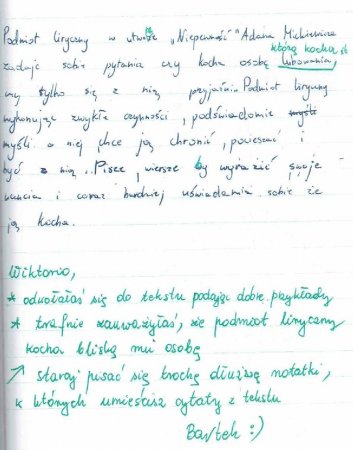 Podmiot liryczny w utworze „Niepewność" Adama Mickiewicza
zadaje sobie pytania czy kocha osobę lubowania, którą kocha
czy tylko się z nią przyjaźni. Podmiot liryczny
wykonując zwykłe czynności, podświadomie
myśli o niej chce ją chronić, pocieszać i
być z nią. Pisze, wiersze by wyrazić swoje
uczucia i coraz bardziej uświadamia sobie że
ją kocha.
Wiktorio,
* odwołałaś się do tekstu podając dobre przykłady
* trafnie zauważyłaś, że podmiot liryczny
kocha bliską mu osobę
↗ staraj pisać się trochę dłuższe notatki,
w których umieścisz cytaty z tekstu
Bartek :)